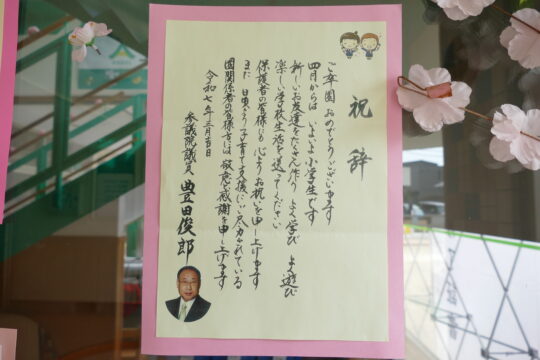 祝辞
ご卒園おめでとうございます
四月からは いよいよ小学生です
新しいお友達をたくさん作り よく学び よく遊び
楽しい学校生活を送ってください
保護者の皆様にも 心よりお祝いを申し上げます
また 日頃より子育て支援にご尽力されている
園関係者の皆様方には 敬意と感謝を申し上げます
令和七年三月吉日
参議院議員 豊田俊郎